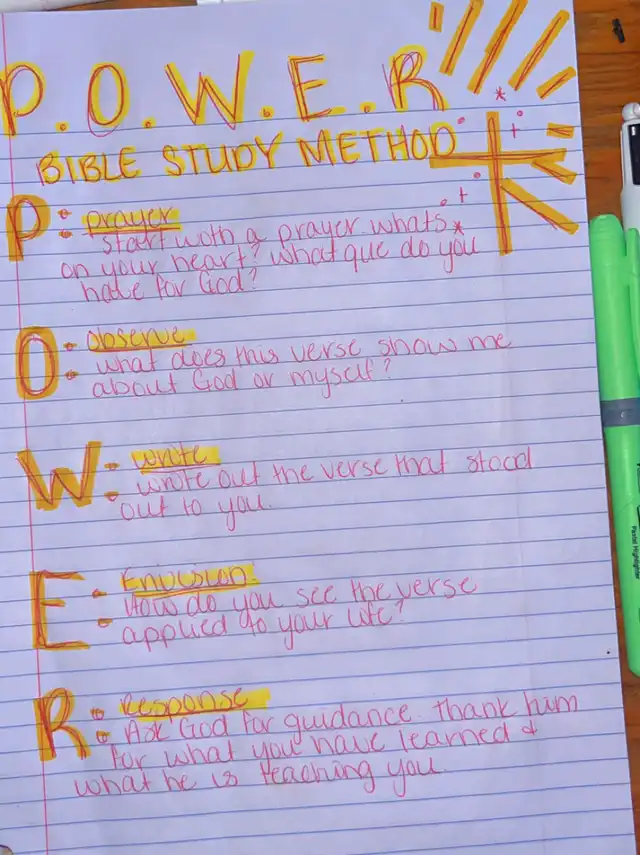 P.O.W.E.R
BIBLE STUDY METHOD
P: prayer
start woth a prayer. whats
on your heart? what que do you
have for God?
O: observe
what does this verse show me
about God or myself?
W: wrote
wrote out the verse that stood
out to you.
E: Envision.
How do you see the verse
applied to your life?
R: Response
Ask God for guidance. Thank him
for what you have learned &
what he is teaching you.
Pastel Highlighter